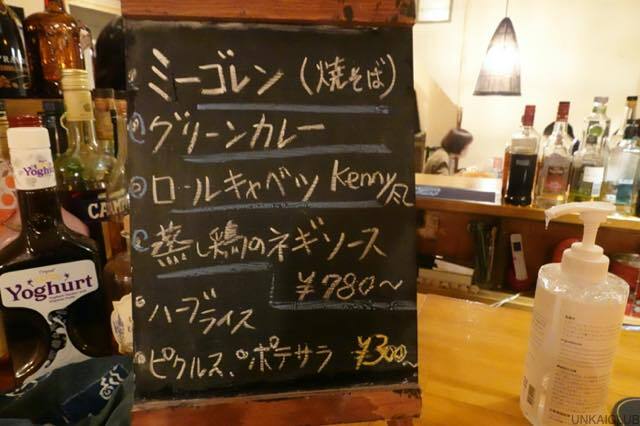 ミーゴレン (焼そば)
グリーンカレー
ロールキャベツ Kenny風
蒸し鶏のネギソース
¥780〜
ハーブ
ライス
ピクルス、ポテサラ ¥300〜
Yoghurt
Yoghurt
CAM
UNKAICLUB